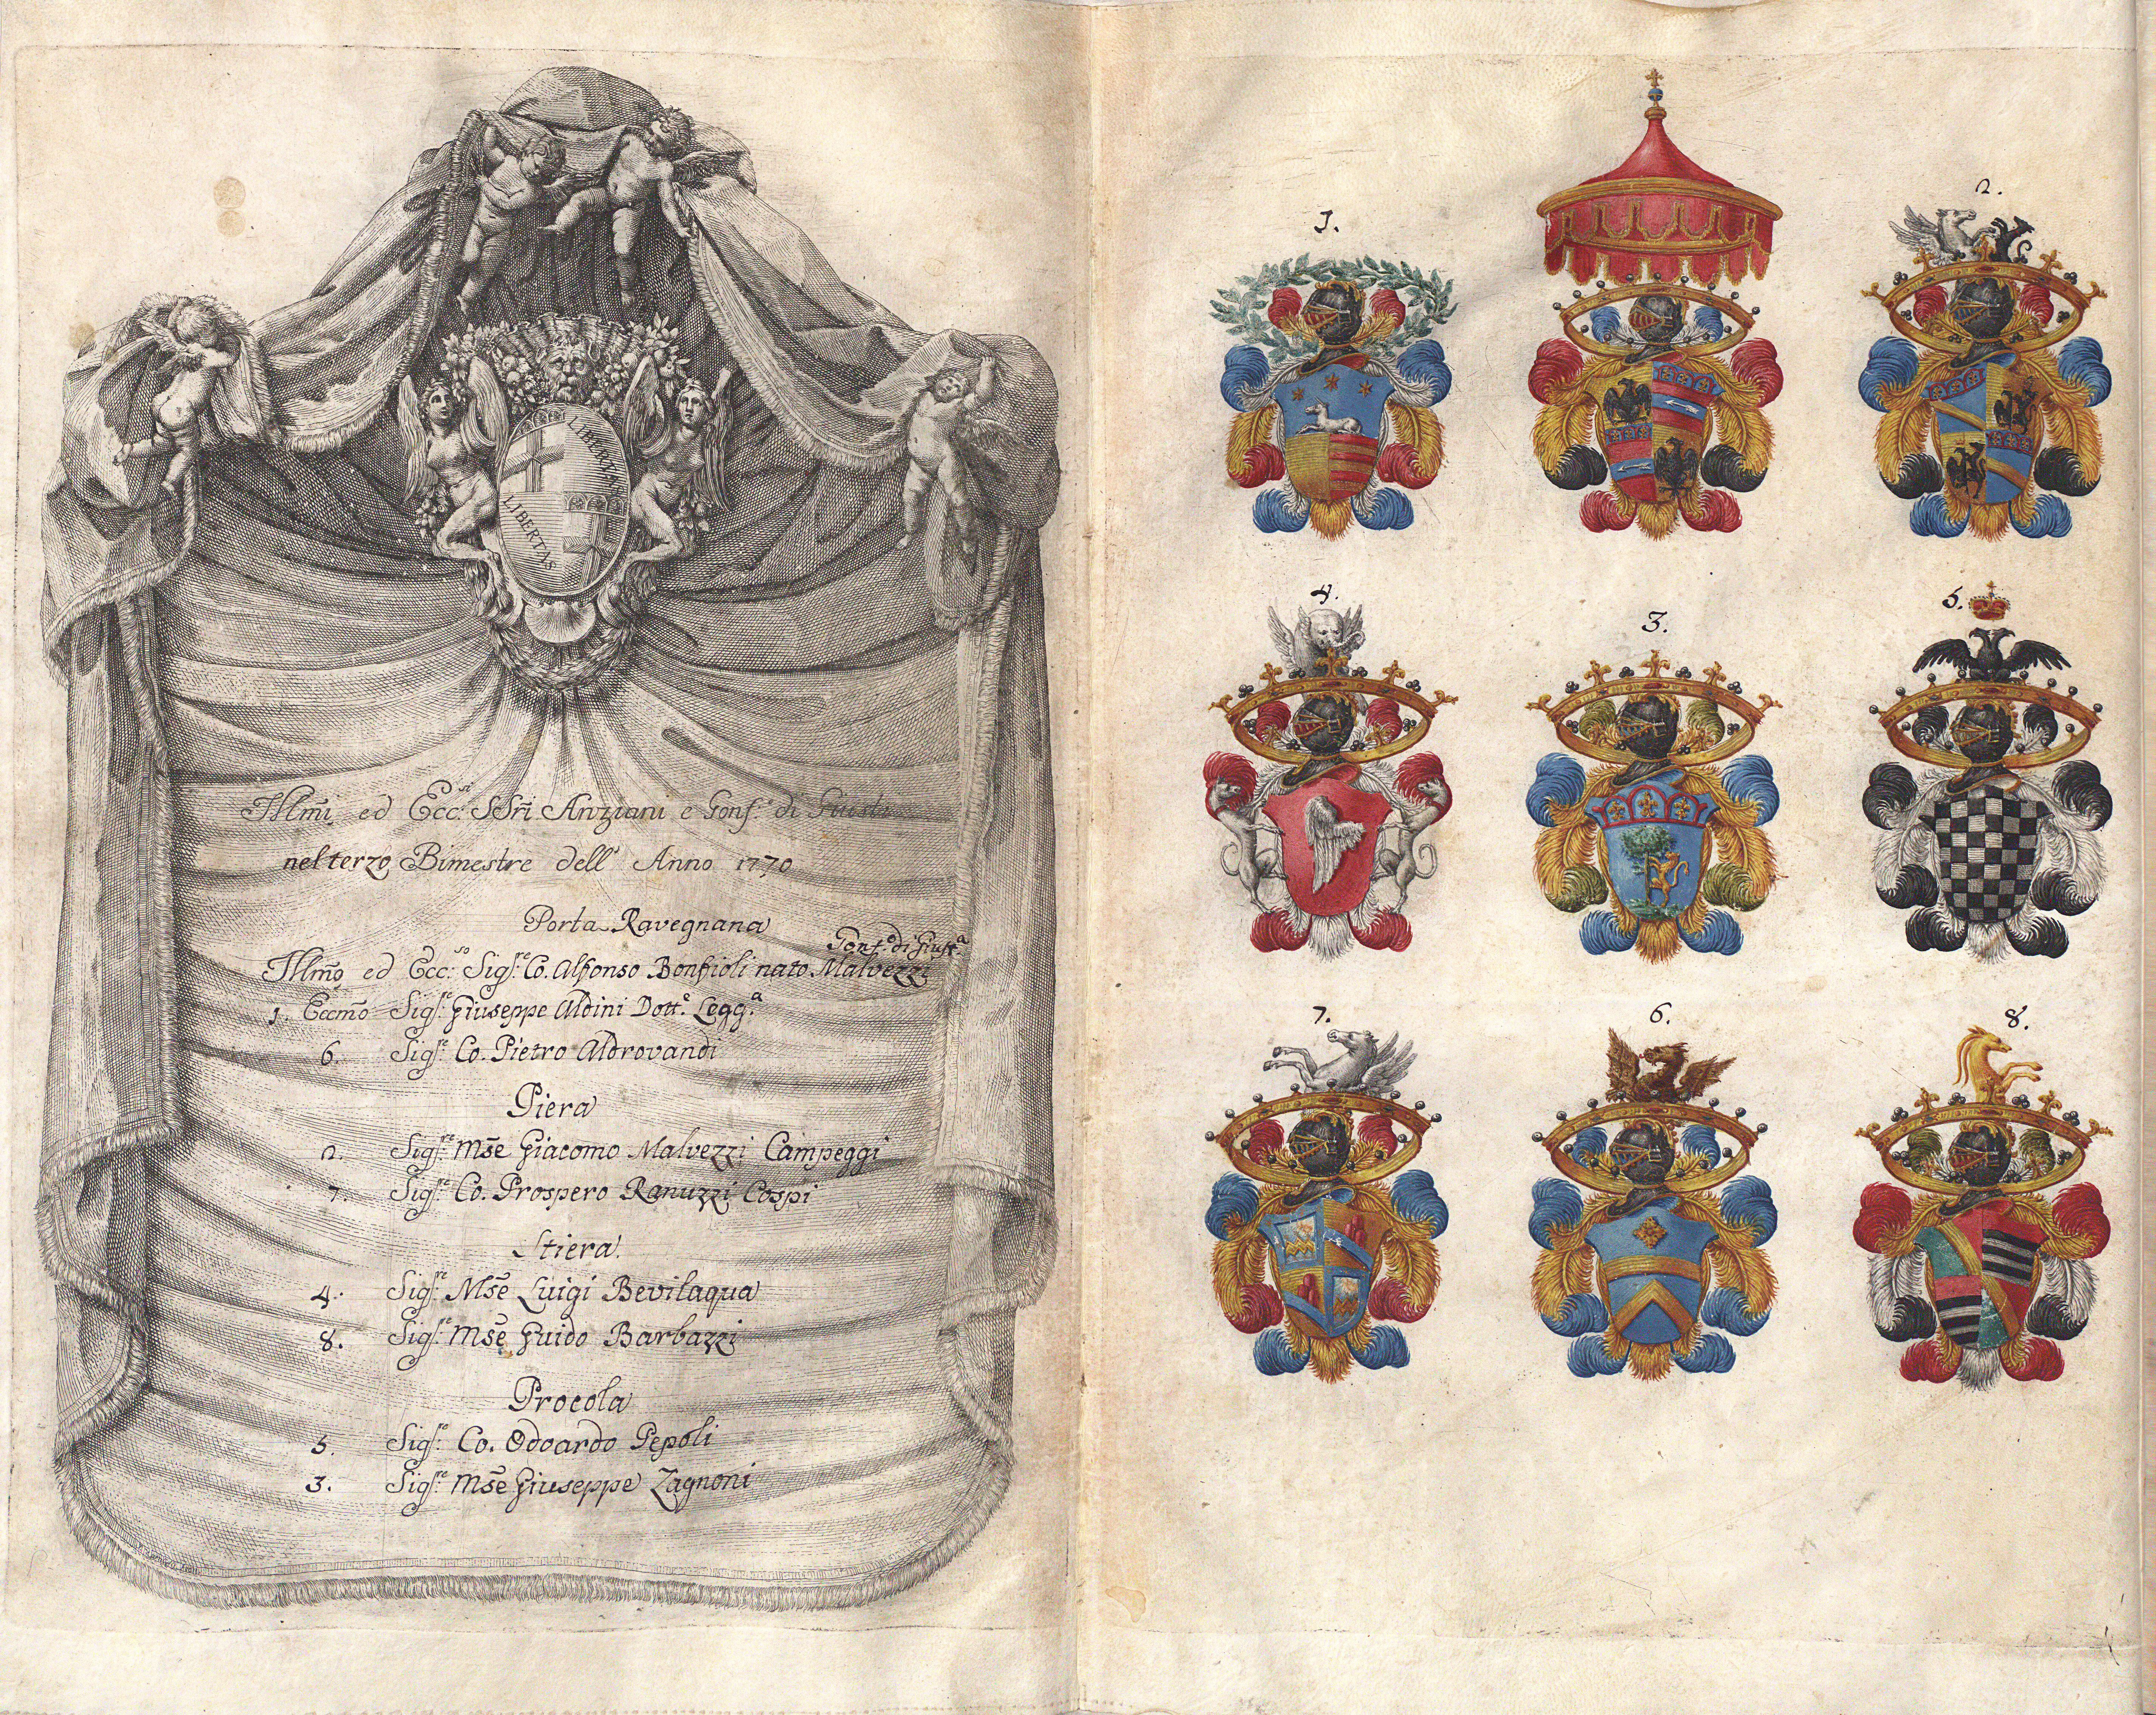 LIBERTAS
LIBERTAS
Illm̃i ed Ecc:si SSri Anziani e Gonf.e di Giusti
nel terzo Bimestre dell' Anno 1770
Porta Ravegnana
Gonf.e di Giust.a
Illm̃o ed Ecc:so Sig.re Co. Alfonso Bonfioli nato Malvezzi
1. Eccm̃o Sig.re Giuseppe Aldini Dott.e Legg.a
6. Sig.re Co. Pietro Aldrovandi
Piera
2. Sig.re Mse Giacomo Malvezzi Campeggi
7. Sig.re Co. Prospero Ranuzzi Cospi
Stiera
4. Sig.re Mse Luigi Bevilaqua
8. Sig.re Mse Guido Barbazzi
Procola
5. Sig.re Co. Odoardo Pepoli
3. Sig.re Mse Giuseppe Zagnoni
1.
2.
4.
3.
5.
7.
6.
8.